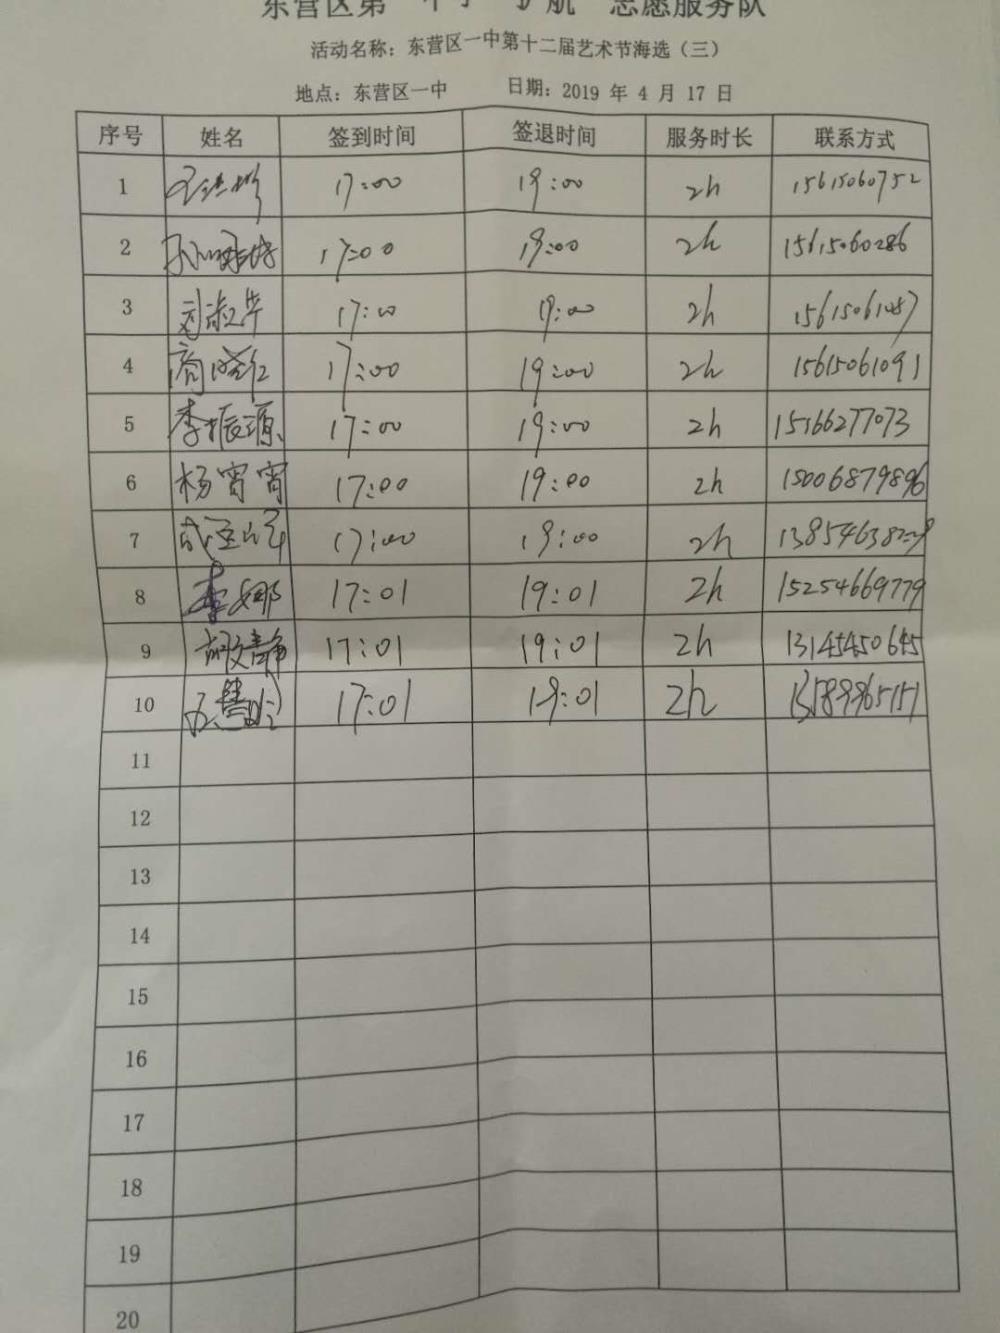 东营区第一中学“护航”志愿服务队
活动名称：东营区一中第十二届艺术节海选（三）
地点：东营区一中 日期：2019 年 4 月 17 日
序号 姓名 签到时间 签退时间 服务时长 联系方式
1 17:00 19:00 2h 15615060752
2 17:00 19:00 2h 15615060286
3 刘淑华 17:00 19:00 2h
4 17:00 19:00 2h 15615061091
5 李振源 17:00 19:00 2h 15166277073
6 杨宵宵 17:00 19:00 2h 15006879896
7 17:00 19:00 2h
8 李娜 17:01 19:01 2h 15254669779
9 胡文静 17:01 19:01 2h 13145450645
10 17:01 19:01 2h 13589965151
11
12
13
14
15
16
17
18
19
20